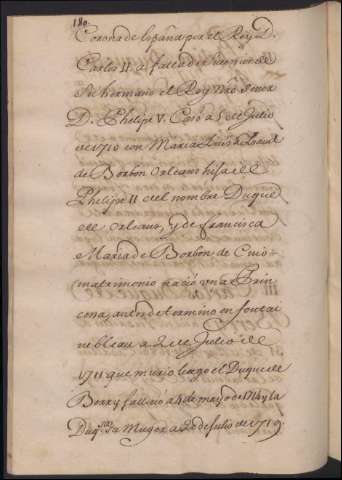 180
Corona de España por el Rey D.
Carlos II. a falta de
Su hermano el Rey nro Senor
D. Phelipe V. Casó a 5 de Julio
de 1710 con Maria Luis
de Borbòn Orleans hija de
Phelipe II de el nombre Duque
de Orleans, y de francisca
Maria de Borbòn de Cuio
matrimonio nació una Prin
cesa, antes de termino en fontai
nebleau a 2 de Julio de
1711 que murio luego el Duque de
Berry falleció a 4 de mayo de 1714 y la
Duq.sa Su Muger a 20 de Julio de 1719.